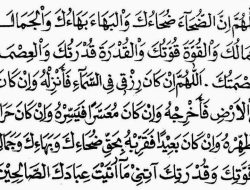 لّٰهُمَّ إِنَّ الضُّحَآءَ ضُحَاءُكَ وَالْبَهَاءَ بَهَاءُكَ وَالْجَمَالَ
مَالُكَ وَالْقُوَّةَ قُوَّتُكَ وَالْقُدْرَةَ قُدْرَتُكَ وَالْعِصْمَةَ
صْمَتُكَ . اَللّٰهُمَّ إِنْ كَانَ رِزْقِى فِى السَّمَآءِ فَأَنْزِلْهُ وَإِنْ كَانَ
الْأَرْضِ فَأَخْرِجْهُ وَإِنْ كَانَ مُعَسَّرًا فَيَسِّرْهُ وَإِنْ كَانَ حَرَ
هِّرْهُ وَإِنْ كَانَ بَعِيدًا فَقَرِّبْهُ بِحَقِّ ضُحَاءِكَ وَبَهَاءِكَ وَجَمَا
قُوَّتِكَ وَقُدْرَتِكَ آتِنِى مَآ آتَيْتَ عِبَادَكَ الصَّالِحِيْنَ